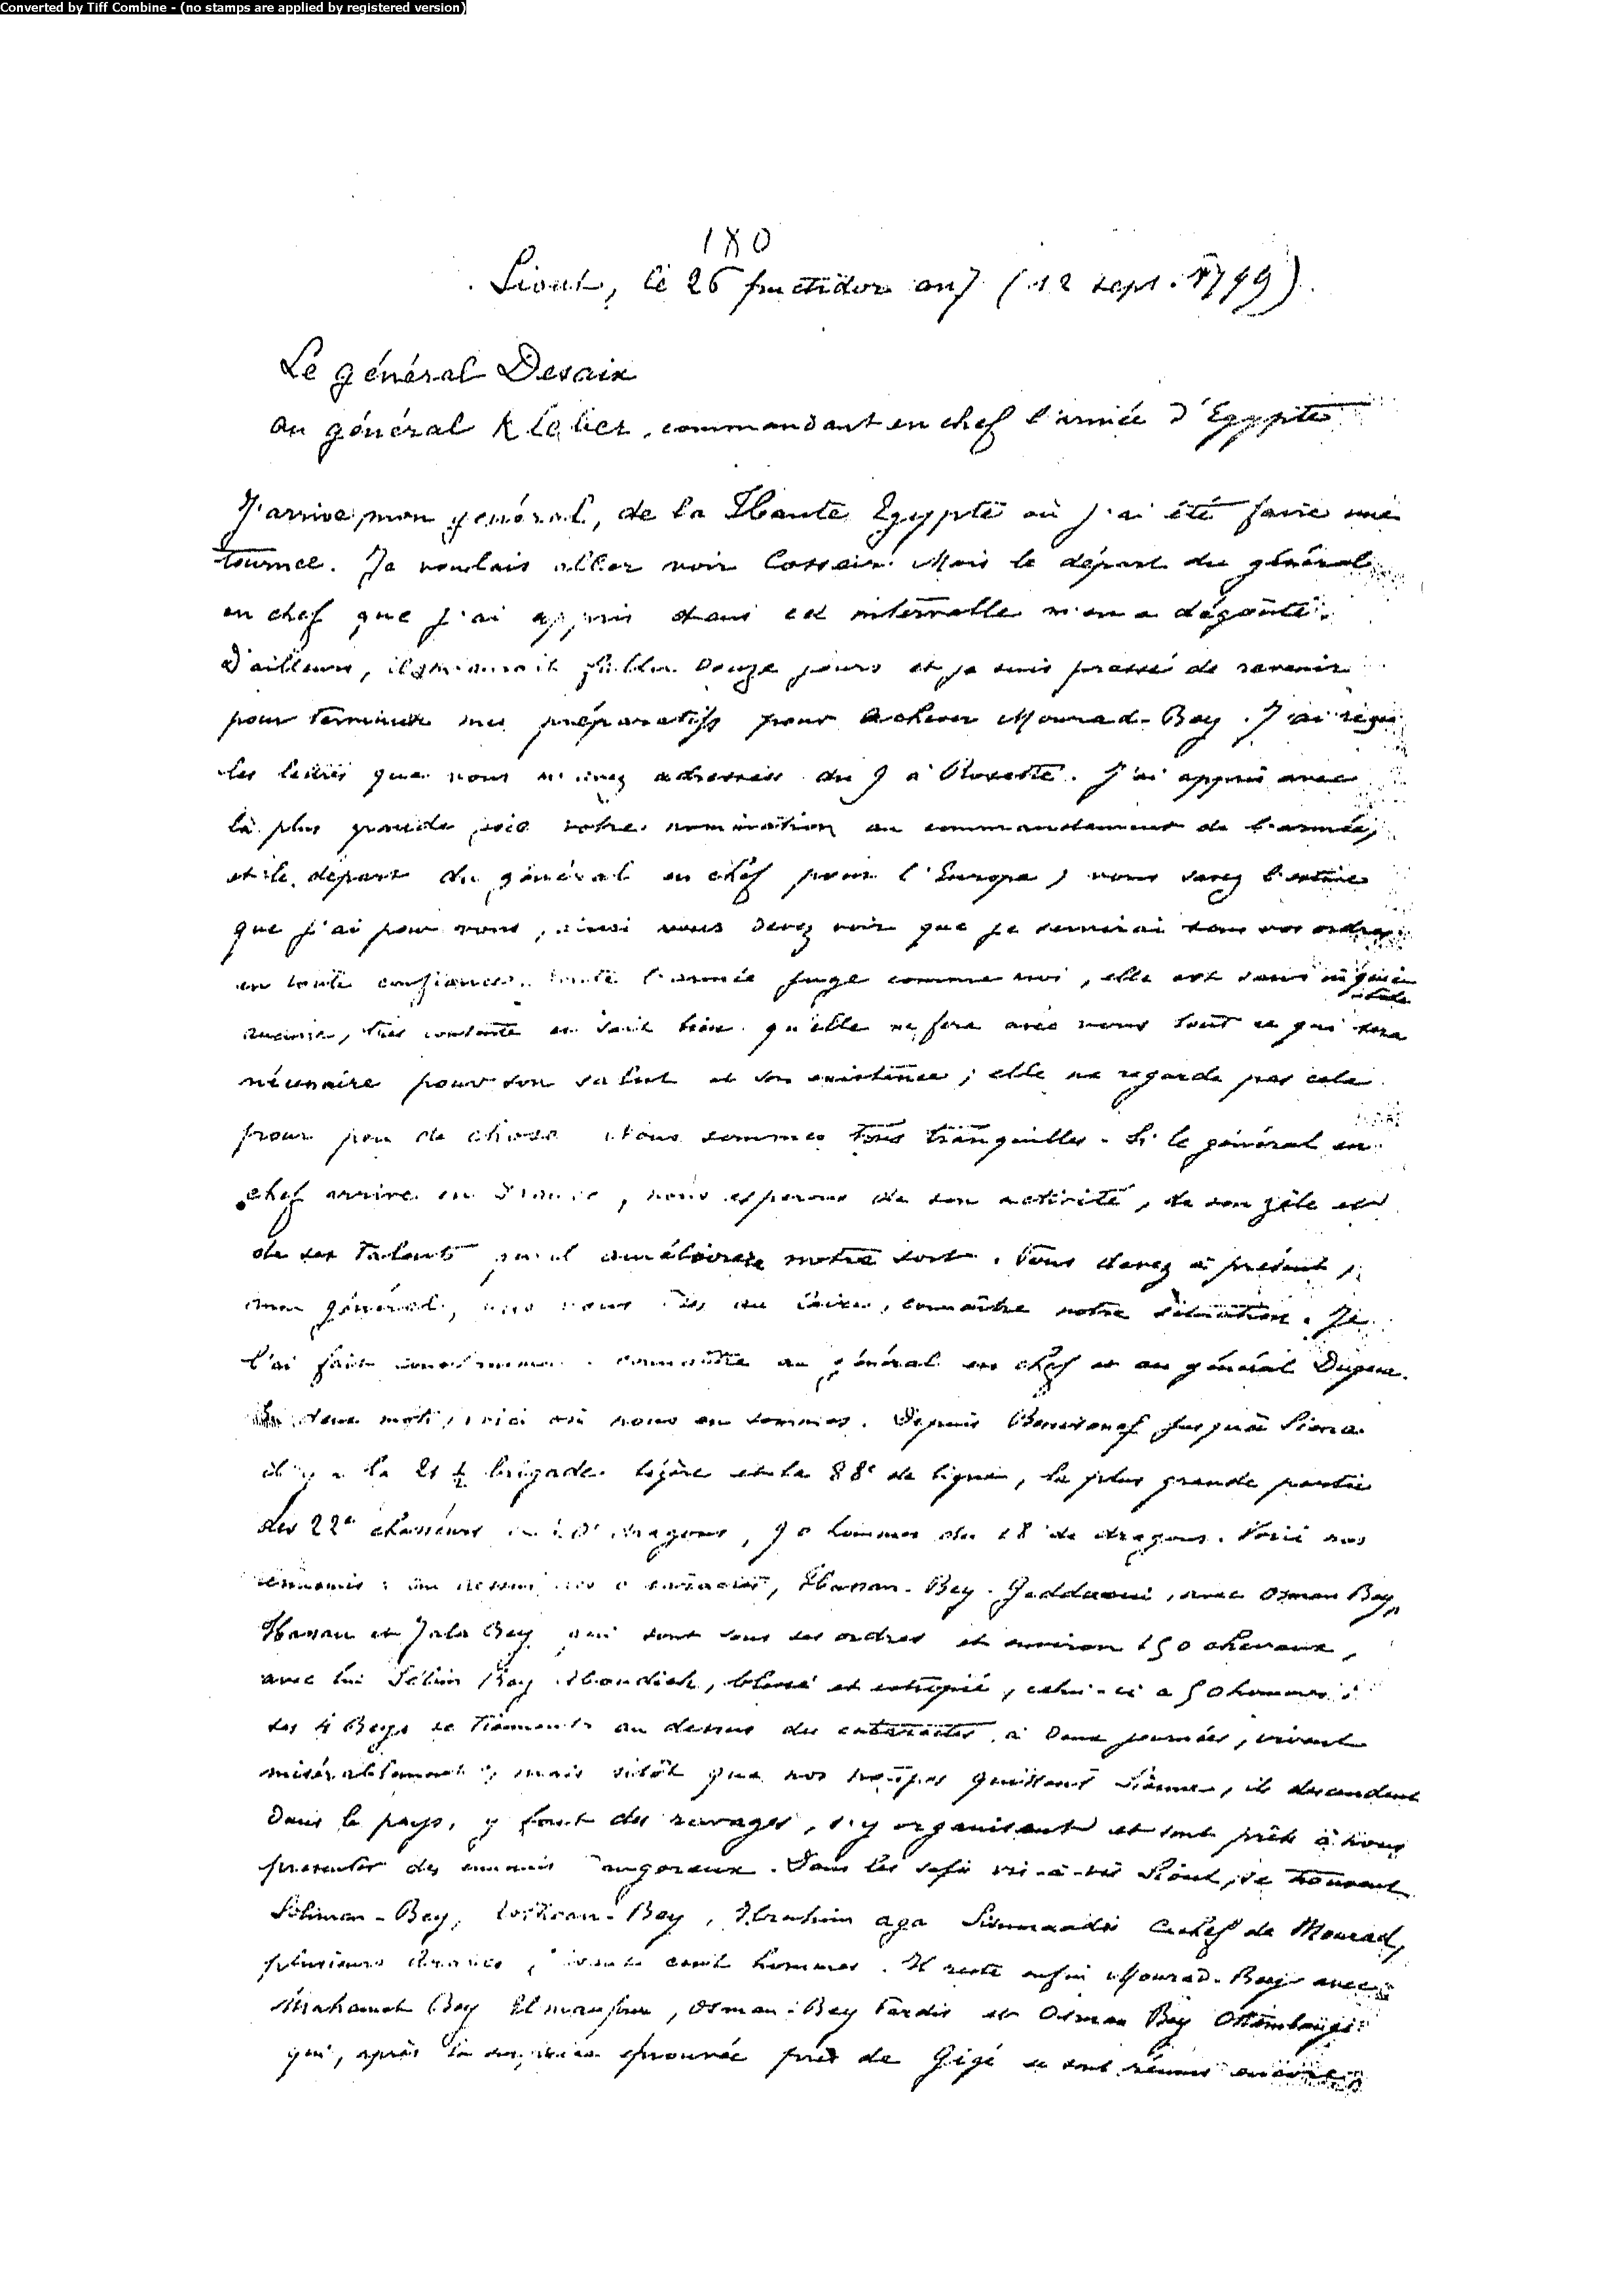 Converted by Tiff Combine - (no stamps are applied by registered version)
180
Siout, le 26 fructidor an 7 (12 sept. 1799).
Le général Desaix
au général Kléber, commandant en chef l'armée d'Egypte
J'arrive mon général, de la Haute Egypte où j'ai été faire une
tournée. Je voulais aller voir Cosseir. Mais le départ du général
en chef que j'ai appris dans cet intervalle m'en a dégoûté.
D'ailleurs, il m'aurait fallu douze jours et je suis pressé de revenir
pour terminer mes préparatifs pour achever Mourad-Bey. J'ai reçu
les lettres que vous m'avez adressées du 9 à Rosette. J'ai appris avec
la plus grande joie votre nomination au commandement de l'armée,
et le départ du général en chef pour l'Europe, vous savez l'estime
que j'ai pour vous, ainsi vous devez voir que je servirai sous vos ordres
en toute confiance. Toute l'armée juge comme moi, elle est sans inquié
tude
aucune, très contente et sait bien qu'elle ne fera avec vous tout ce qui sera
nécessaire pour son salut et son existence ; elle ne regarde pas cela
pour peu de chose. Nous sommes tous tranquilles. Si le général en
chef arrive en France, nous espérons de son activité, de son zèle et
de ses talents qu'il améliorera notre sort. Vous devez à présent,
mon général, que vous êtes au Caire, connaître notre situation. Je
l'ai fait connaître au général en chef et au général Dugua.
En deux mots, voici où nous en sommes. Depuis Benisouef jusqu'à Siena
il y a la 21 ½ brigade légère et la 88e de ligne, la plus grande partie
des 22e chasseurs et 20e dragons, 90 hommes du 18 de dragons. Voici nos
ennemis : au dessus des cataractes, Hassan-Bey-Geddaoui, avec Osman Bey,
Hassan et Jala Bey qui sont sous ses ordres et environ 150 chevaux,
avec lui Sélim Bey Aboudiek, blessé et estropié, celui-ci a 50 hommes ;
ces 4 Beys se tiennent au dessus des cataractes à deux journées, vivant
misérablement ; mais sitôt que nos troupes quittent Sienne, ils descendent
dans le pays, y font des ravages, s'y organisent et sont prêts à nous
présenter des ennemis dangereux. Dans les vis-à-vis Siout, se trouvent
Soliman-Bey, Bey, Ibrahim aga cachef de Mourad,
plusieurs autres, cent hommes. Il reste enfin Mourad-Bey avec
Mahamet Bey Elmanfou, Osman-Bey Tardis et Osman Bey
qui, après la surprise éprouvée près de Gigé se sont réunis encore,